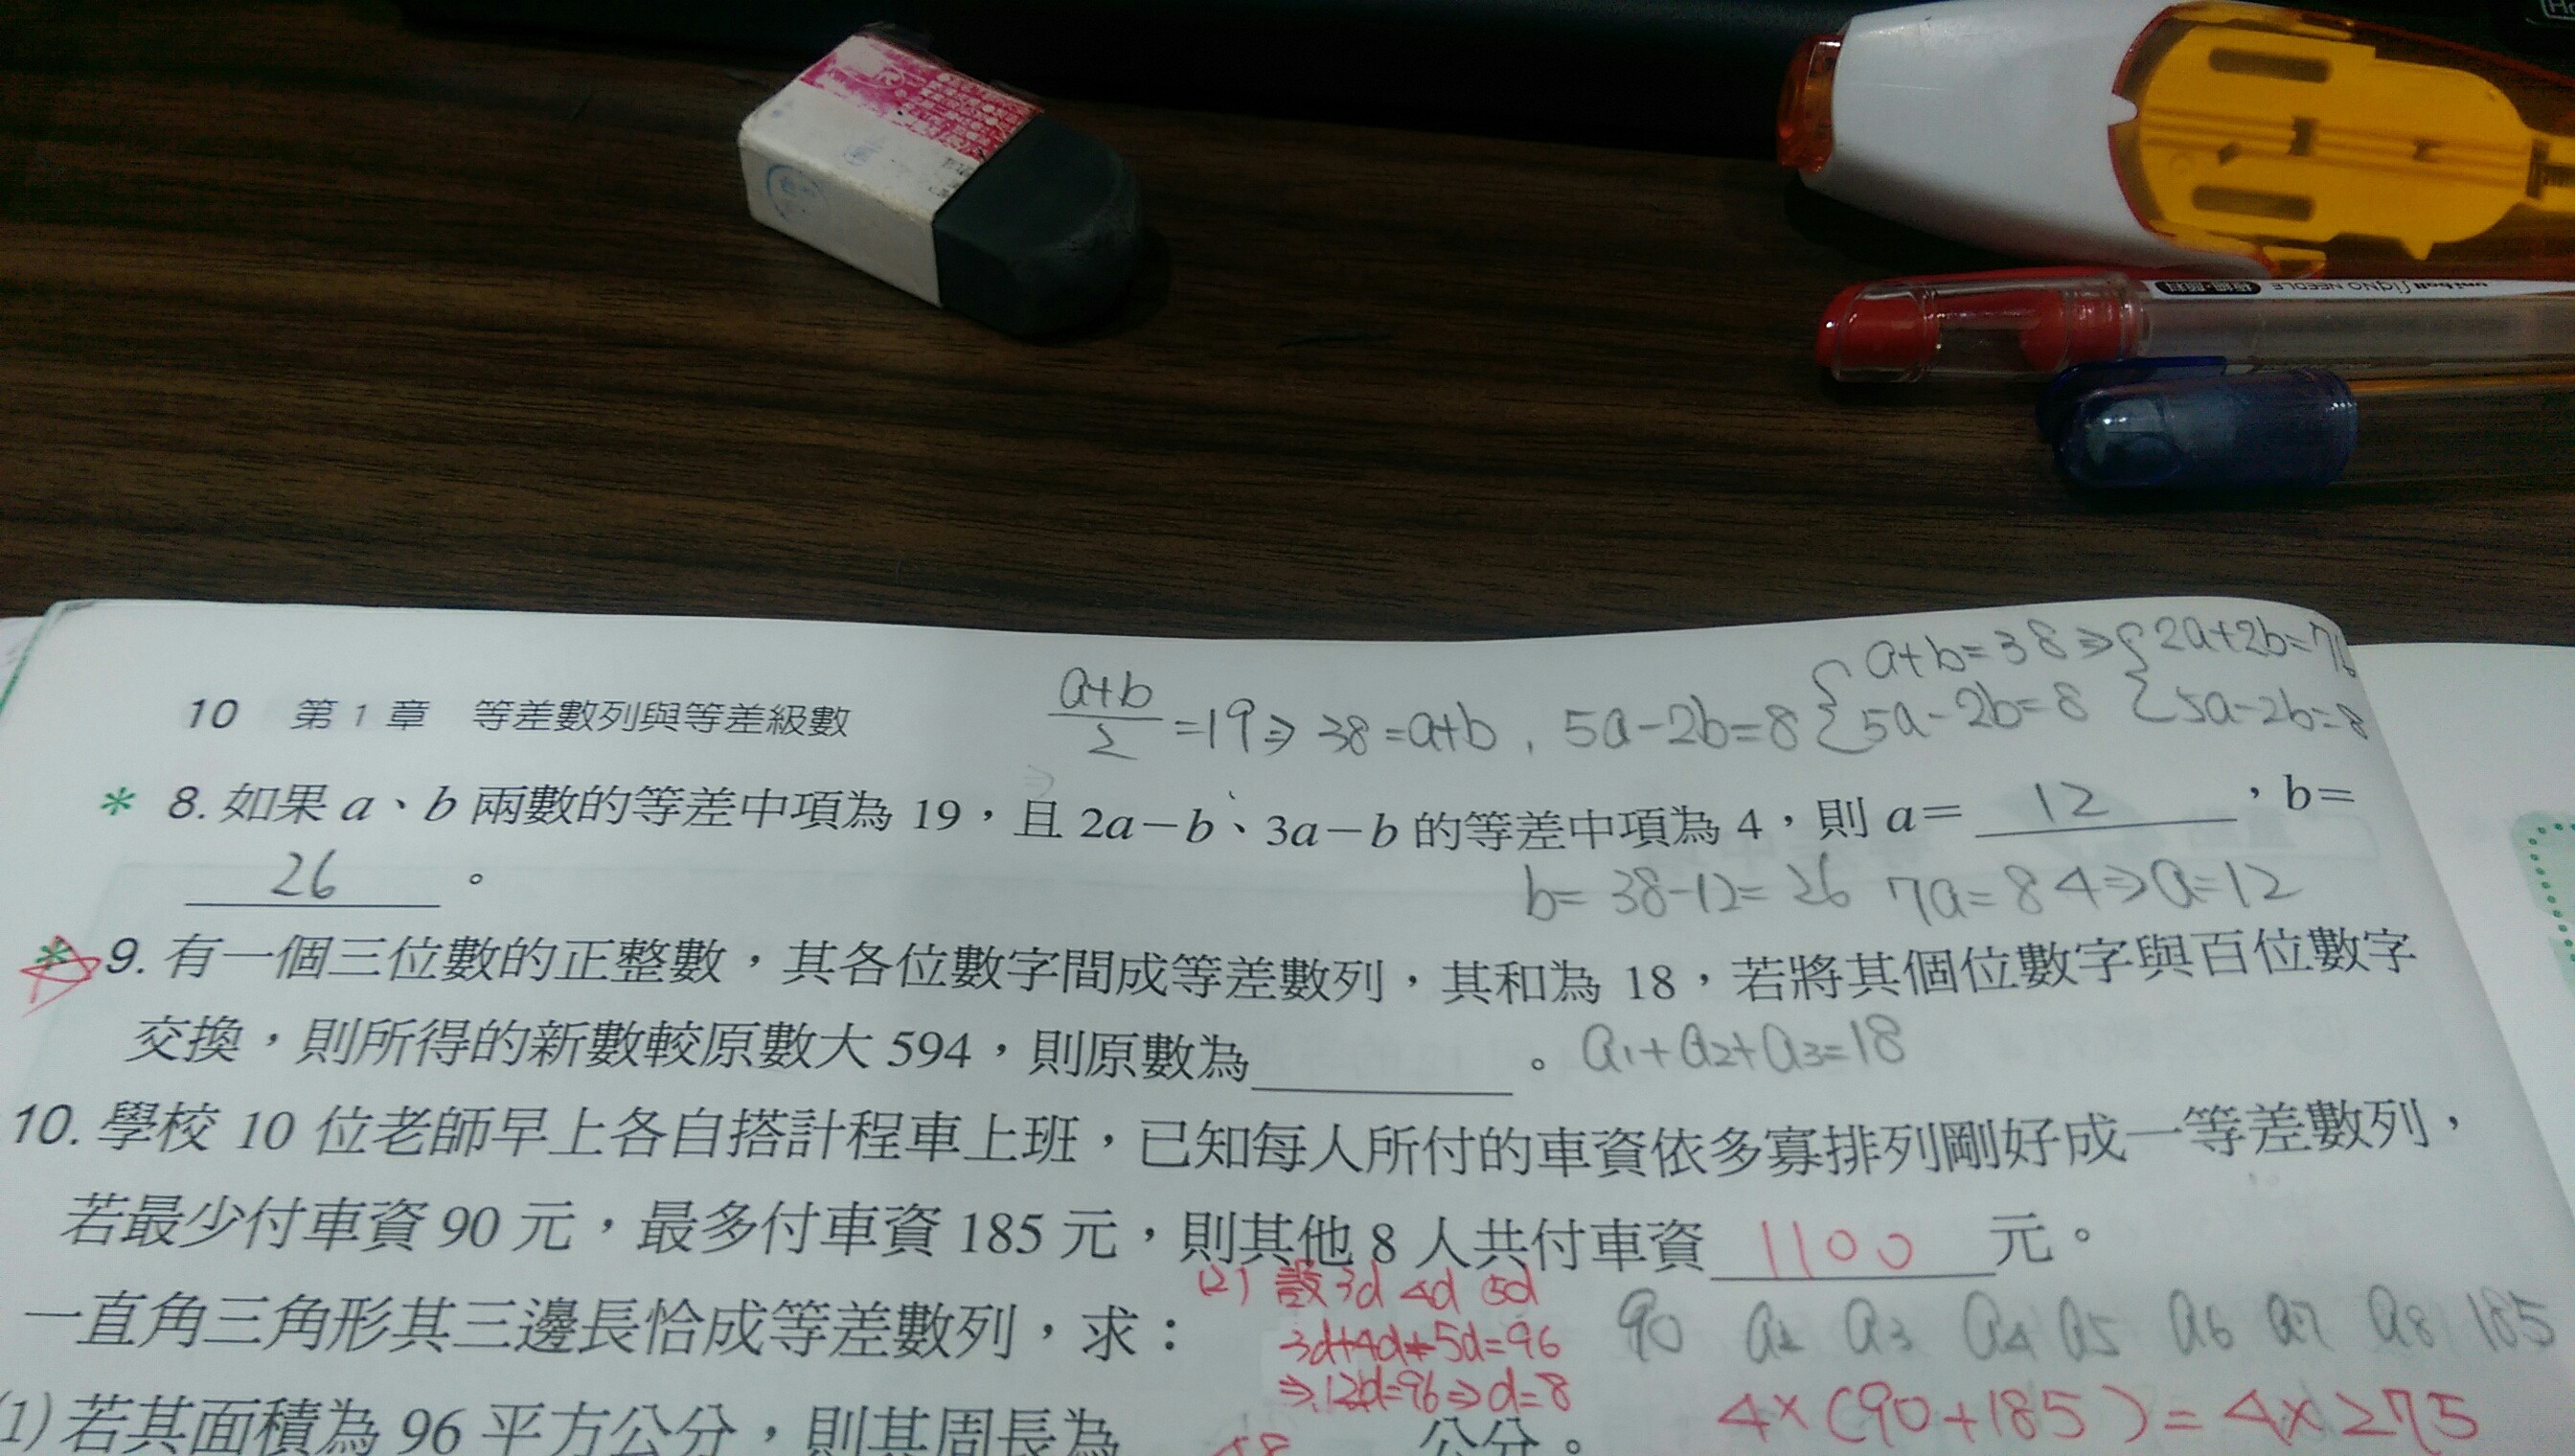 uni-ball Signo NEEDLE
a+b=38⇒{2a+2b=76
10 第 1 章 等差數列與等差級數
(a+b)/2=19⇒38=a+b, 5a-2b=8 {5a-2b=8 {5a-2b=8
* 8. 如果 a、b 兩數的等差中項為 19，且 2a－b、3a－b 的等差中項為 4，則 a＝ 12 ，b＝
26 。
b=38-12=26 7a=84⇒a=12
* 9. 有一個三位數的正整數，其各位數字間成等差數列，其和為 18，若將其個位數字與百位數字
交換，則所得的新數較原數大 594，則原數為 。 a1+a2+a3=18
10. 學校 10 位老師早上各自搭計程車上班，已知每人所付的車資依多寡排列剛好成一等差數列，
若最少付車資 90 元，最多付車資 185 元，則其他 8 人共付車資 1100 元。
(2) 設3d 4d 5d
一直角三角形其三邊長恰成等差數列，求：
3d+4d+5d=96
90 a2 a3 a4 a5 a6 a7 a8 185
⇒12d=96⇒d=8
4×(90+185)=4×275
(1) 若其面積為 96 平方公分，則其周長為 48 公分。